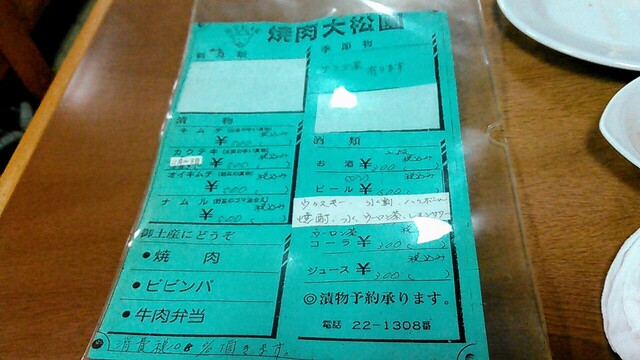 焼肉大松園
季節物
サンチュ有ります
漬物
キムチ
税込み
¥500( )
カクテキ
税込み
¥500
オイキムチ
税込み
¥500( )
ナムル
税込み
¥500( )
御土産にどうぞ
●焼肉
●ビビンバ
●牛肉弁当
消費税10%頂きます。
酒類
お酒 ¥300( )
税込み
ビール ¥600
ウイスキー、水割、ハイボール
焼酎、水、ウーロン茶、レモンサワー
ウーロン茶
税込み
コーラ ¥300( )
税込み
ジュース ¥300( )
◎漬物予約承ります。
電話 22-1308番